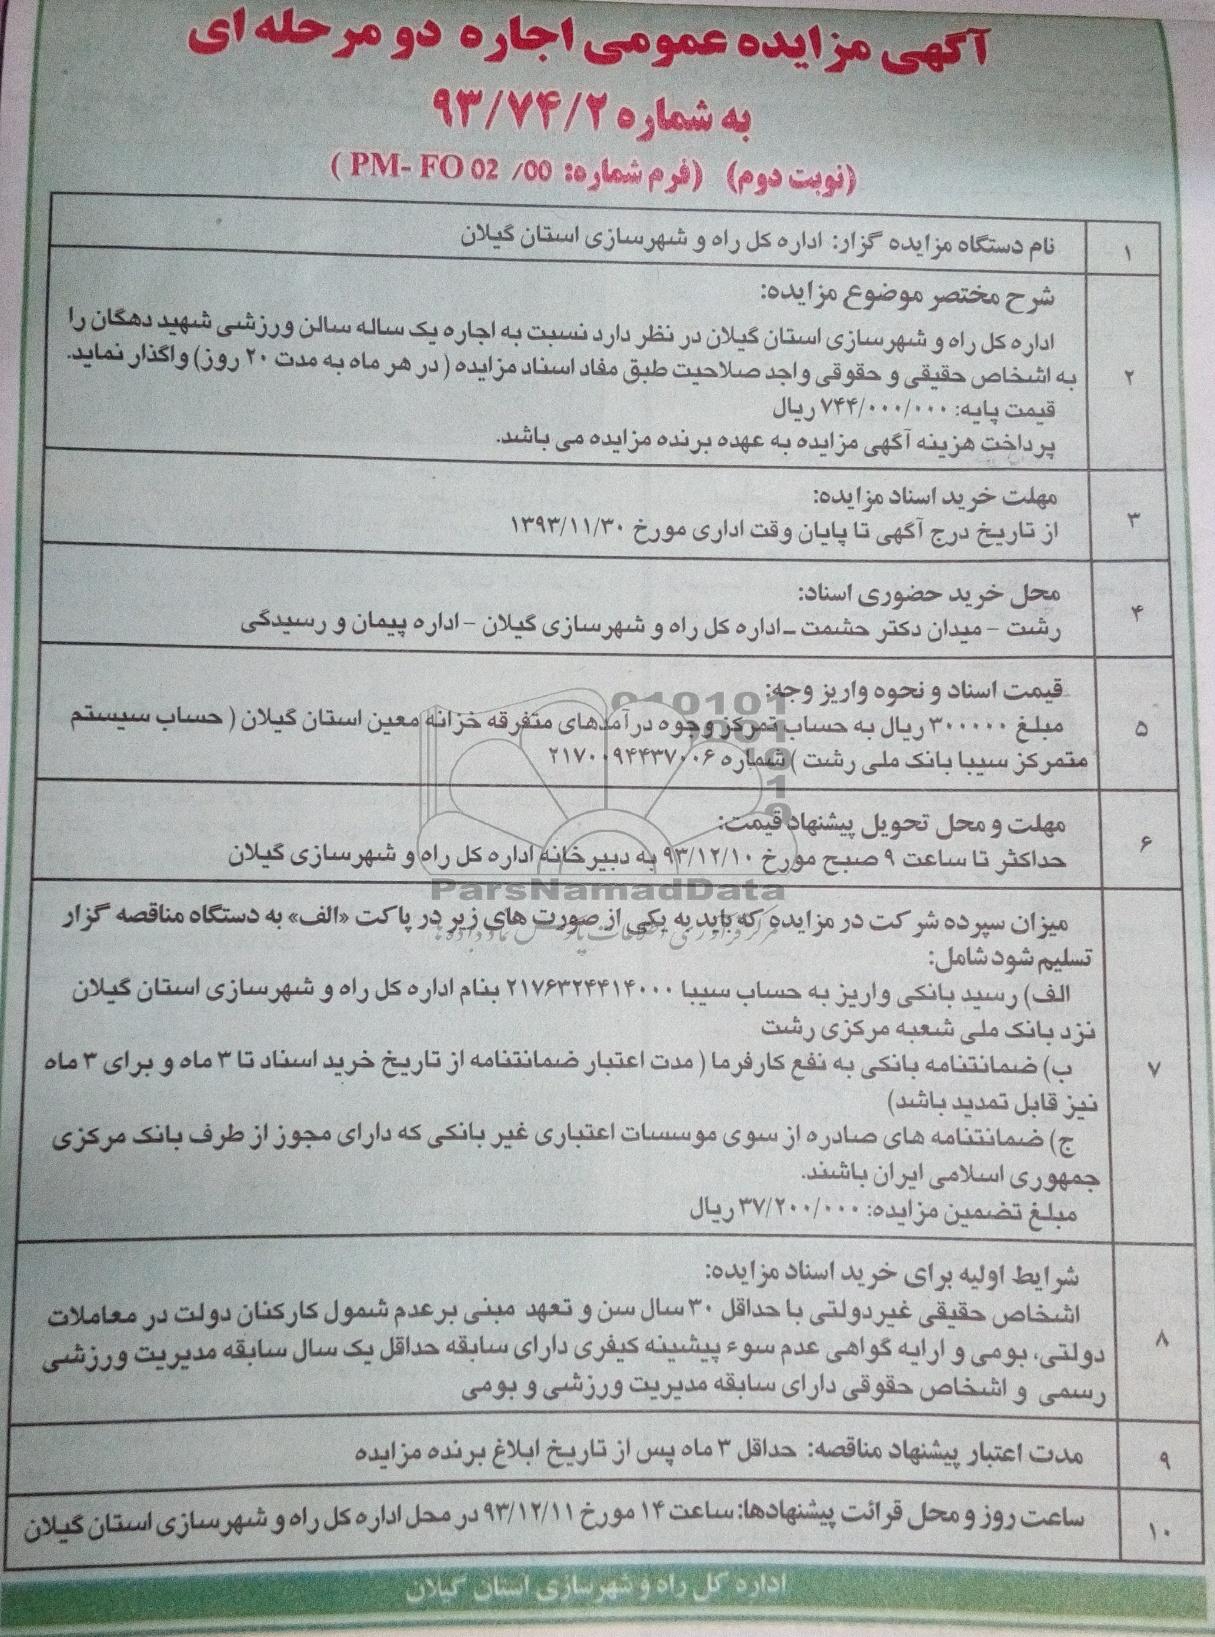 آگهی مزایده عمومی اجاره دو مرحله ای
به شماره ۹۳/۷۴/۲
(نوبت دوم) (فرم شماره: PM- FO 02 /00 )
۱
نام دستگاه مزایده گزار: اداره کل راه و شهرسازی استان گیلان
۲
شرح مختصر موضوع مزایده:
اداره کل راه و شهرسازی استان گیلان در نظر دارد نسبت به اجاره یک ساله سالن ورزشی شهید دهگان را
به اشخاص حقیقی و حقوقی واجد صلاحیت طبق مفاد اسناد مزایده ( در هر ماه به مدت ۲۰ روز) واگذار نماید.
قیمت پایه: ۷۴۴/۰۰۰/۰۰۰ ریال
پرداخت هزینه آگهی مزایده به عهده برنده مزایده می باشد.
۳
مهلت خرید اسناد مزایده:
از تاریخ درج آگهی تا پایان وقت اداری مورخ ۱۳۹۳/۱۱/۳۰
۴
محل خرید حضوری اسناد:
رشت - میدان دکتر حشمت - اداره کل راه و شهرسازی گیلان - اداره پیمان و رسیدگی
۵
قیمت اسناد و نحوه واریز وجه:
مبلغ ۳۰۰۰۰۰ ریال به حساب تمرکز وجوه درآمدهای متفرقه خزانه معین استان گیلان ( حساب سیستم
متمرکز سیبا بانک ملی رشت ) شماره ۲۱۷۰۰۹۴۴۳۷۰۰۶
۶
مهلت و محل تحویل پیشنهاد قیمت:
حداکثر تا ساعت ۹ صبح مورخ ۹۳/۱۲/۱۰ به دبیرخانه اداره کل راه و شهرسازی گیلان
ParsNamadData
۷
میزان سپرده شرکت در مزایده که باید به یکی از صورت های زیر در پاکت «الف» به دستگاه مناقصه گزار
تسلیم شود شامل:
الف) رسید بانکی واریز به حساب سیبا ۲۱۷۶۳۲۴۴۱۴۰۰۰ بنام اداره کل راه و شهرسازی استان گیلان
نزد بانک ملی شعبه مرکزی رشت
ب) ضمانتنامه بانکی به نفع کارفرما ( مدت اعتبار ضمانتنامه از تاریخ خرید اسناد تا ۳ ماه و برای ۳ ماه
نیز قابل تمدید باشد)
ج) ضمانتنامه های صادره از سوی موسسات اعتباری غیر بانکی که دارای مجوز از طرف بانک مرکزی
جمهوری اسلامی ایران باشند.
مبلغ تضمین مزایده: ۳۷/۲۰۰/۰۰۰ ریال
۸
شرایط اولیه برای خرید اسناد مزایده:
اشخاص حقیقی غیردولتی با حداقل ۳۰ سال سن و تعهد مبنی برعدم شمول کارکنان دولت در معاملات
دولتی، بومی و ارایه گواهی عدم سوء پیشینه کیفری دارای سابقه حداقل یک سال سابقه مدیریت ورزشی
رسمی و اشخاص حقوقی دارای سابقه مدیریت ورزشی و بومی
۹
مدت اعتبار پیشنهاد مناقصه: حداقل ۳ ماه پس از تاریخ ابلاغ برنده مزایده
۱۰
ساعت روز و محل قرائت پیشنهادها: ساعت ۱۴ مورخ ۹۳/۱۲/۱۱ در محل اداره کل راه و شهرسازی استان گیلان
اداره کل راه و شهرسازی استان گیلان